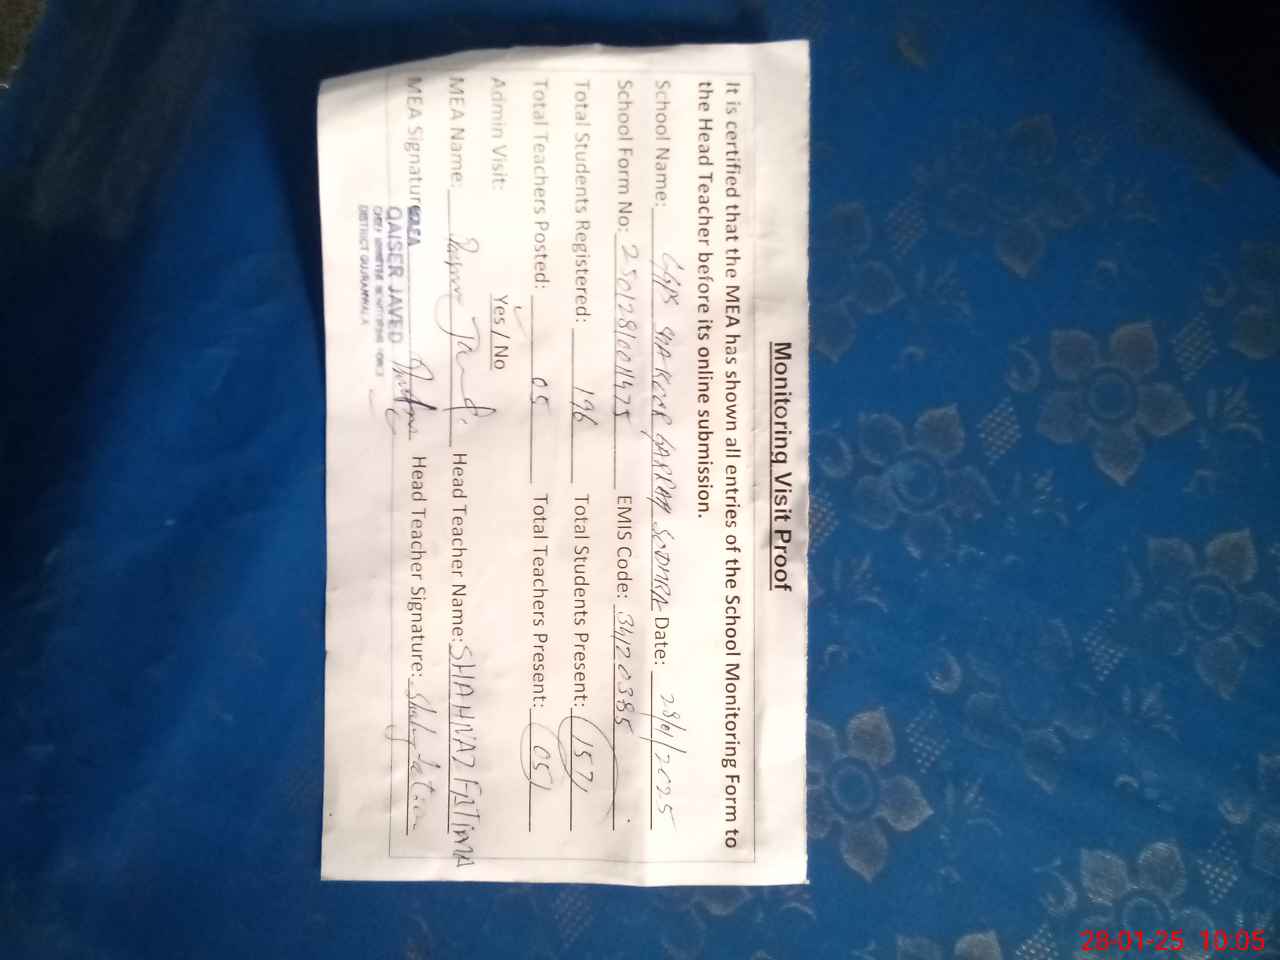 Monitoring Visit Proof
It is certified that the MEA has shown all entries of the School Monitoring Form to
the Head Teacher before its online submission.
School Name: Date: 28/01/2025
School Form No: EMIS Code: 34120385
Total Students Registered: 196 Total Students Present: 157
Total Teachers Posted: 05 Total Teachers Present: 05
Admin Visit: Yes / No
MEA Name: Head Teacher Name: SHAHNAZ FATIMA
MEA Signature: Head Teacher Signature:
MEA
QAISER JAVED
DISTRICT GUJRANWALA
28-01-25 10:05